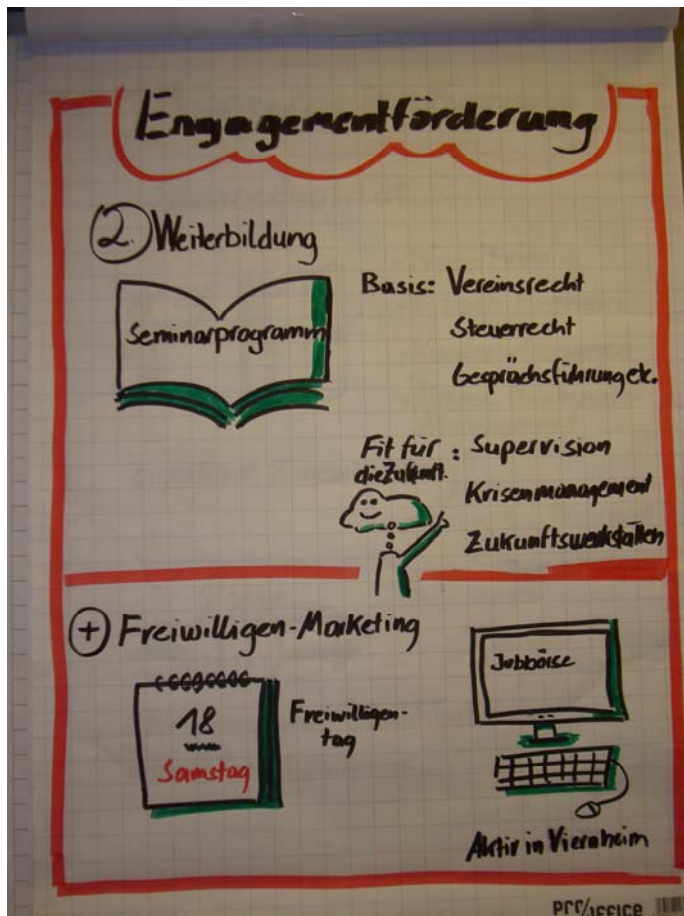 Engagementförderung
2. Weiterbildung
Seminarprogramm
Basis: Vereinsrecht
Steuerrecht
Gesprächsführung etc.
Fit für die Zukunft. : Supervision
Krisenmanagement
Zukunftswerkstätten
+ Freiwilligen-Marketing
18
Samstag
Freiwilligen-
tag
Jobbörse
Aktiv in Viernheim